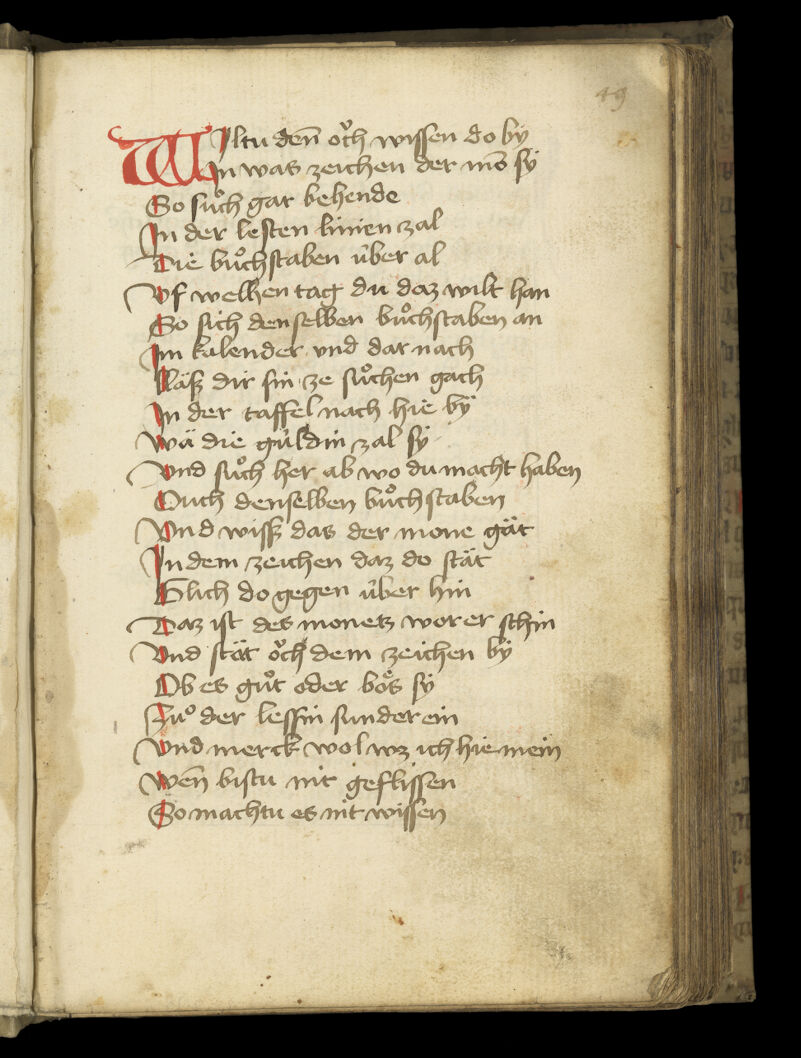 49
WIltu den̄ oͮch wissen do bÿ
In was zeichen der mō sÿ
So suͦch gar behende
In der lesten linien zal
Die buͦchstaben uͤber al
Vf welhen tag du daz wilt han
So sich denselben buͦchstaben an
Im kalender vnd dar nach
Laͤß dir sin ze suͦchen gach
In der taffel nach hie bÿ
Wa die guldin zal sÿ
Vnd suͦch her ab wo du macht haben
Ouch denselben buͦchstaben
Vnd wiß das der mone gaͤt
In dem zeichen daz do staͤt
Glich do gegen uͤber hin
Daz ist des monetz wor er schin
Vnd staͤt oͮch dem zeichen bÿ
Ob es guͦt oder boͤs sÿ
Zuͦ der lessin sunder ein
Vnd merck wol wz ich hie mein
Wen̄ bistu nit geflissen
So machtu es nit wissen